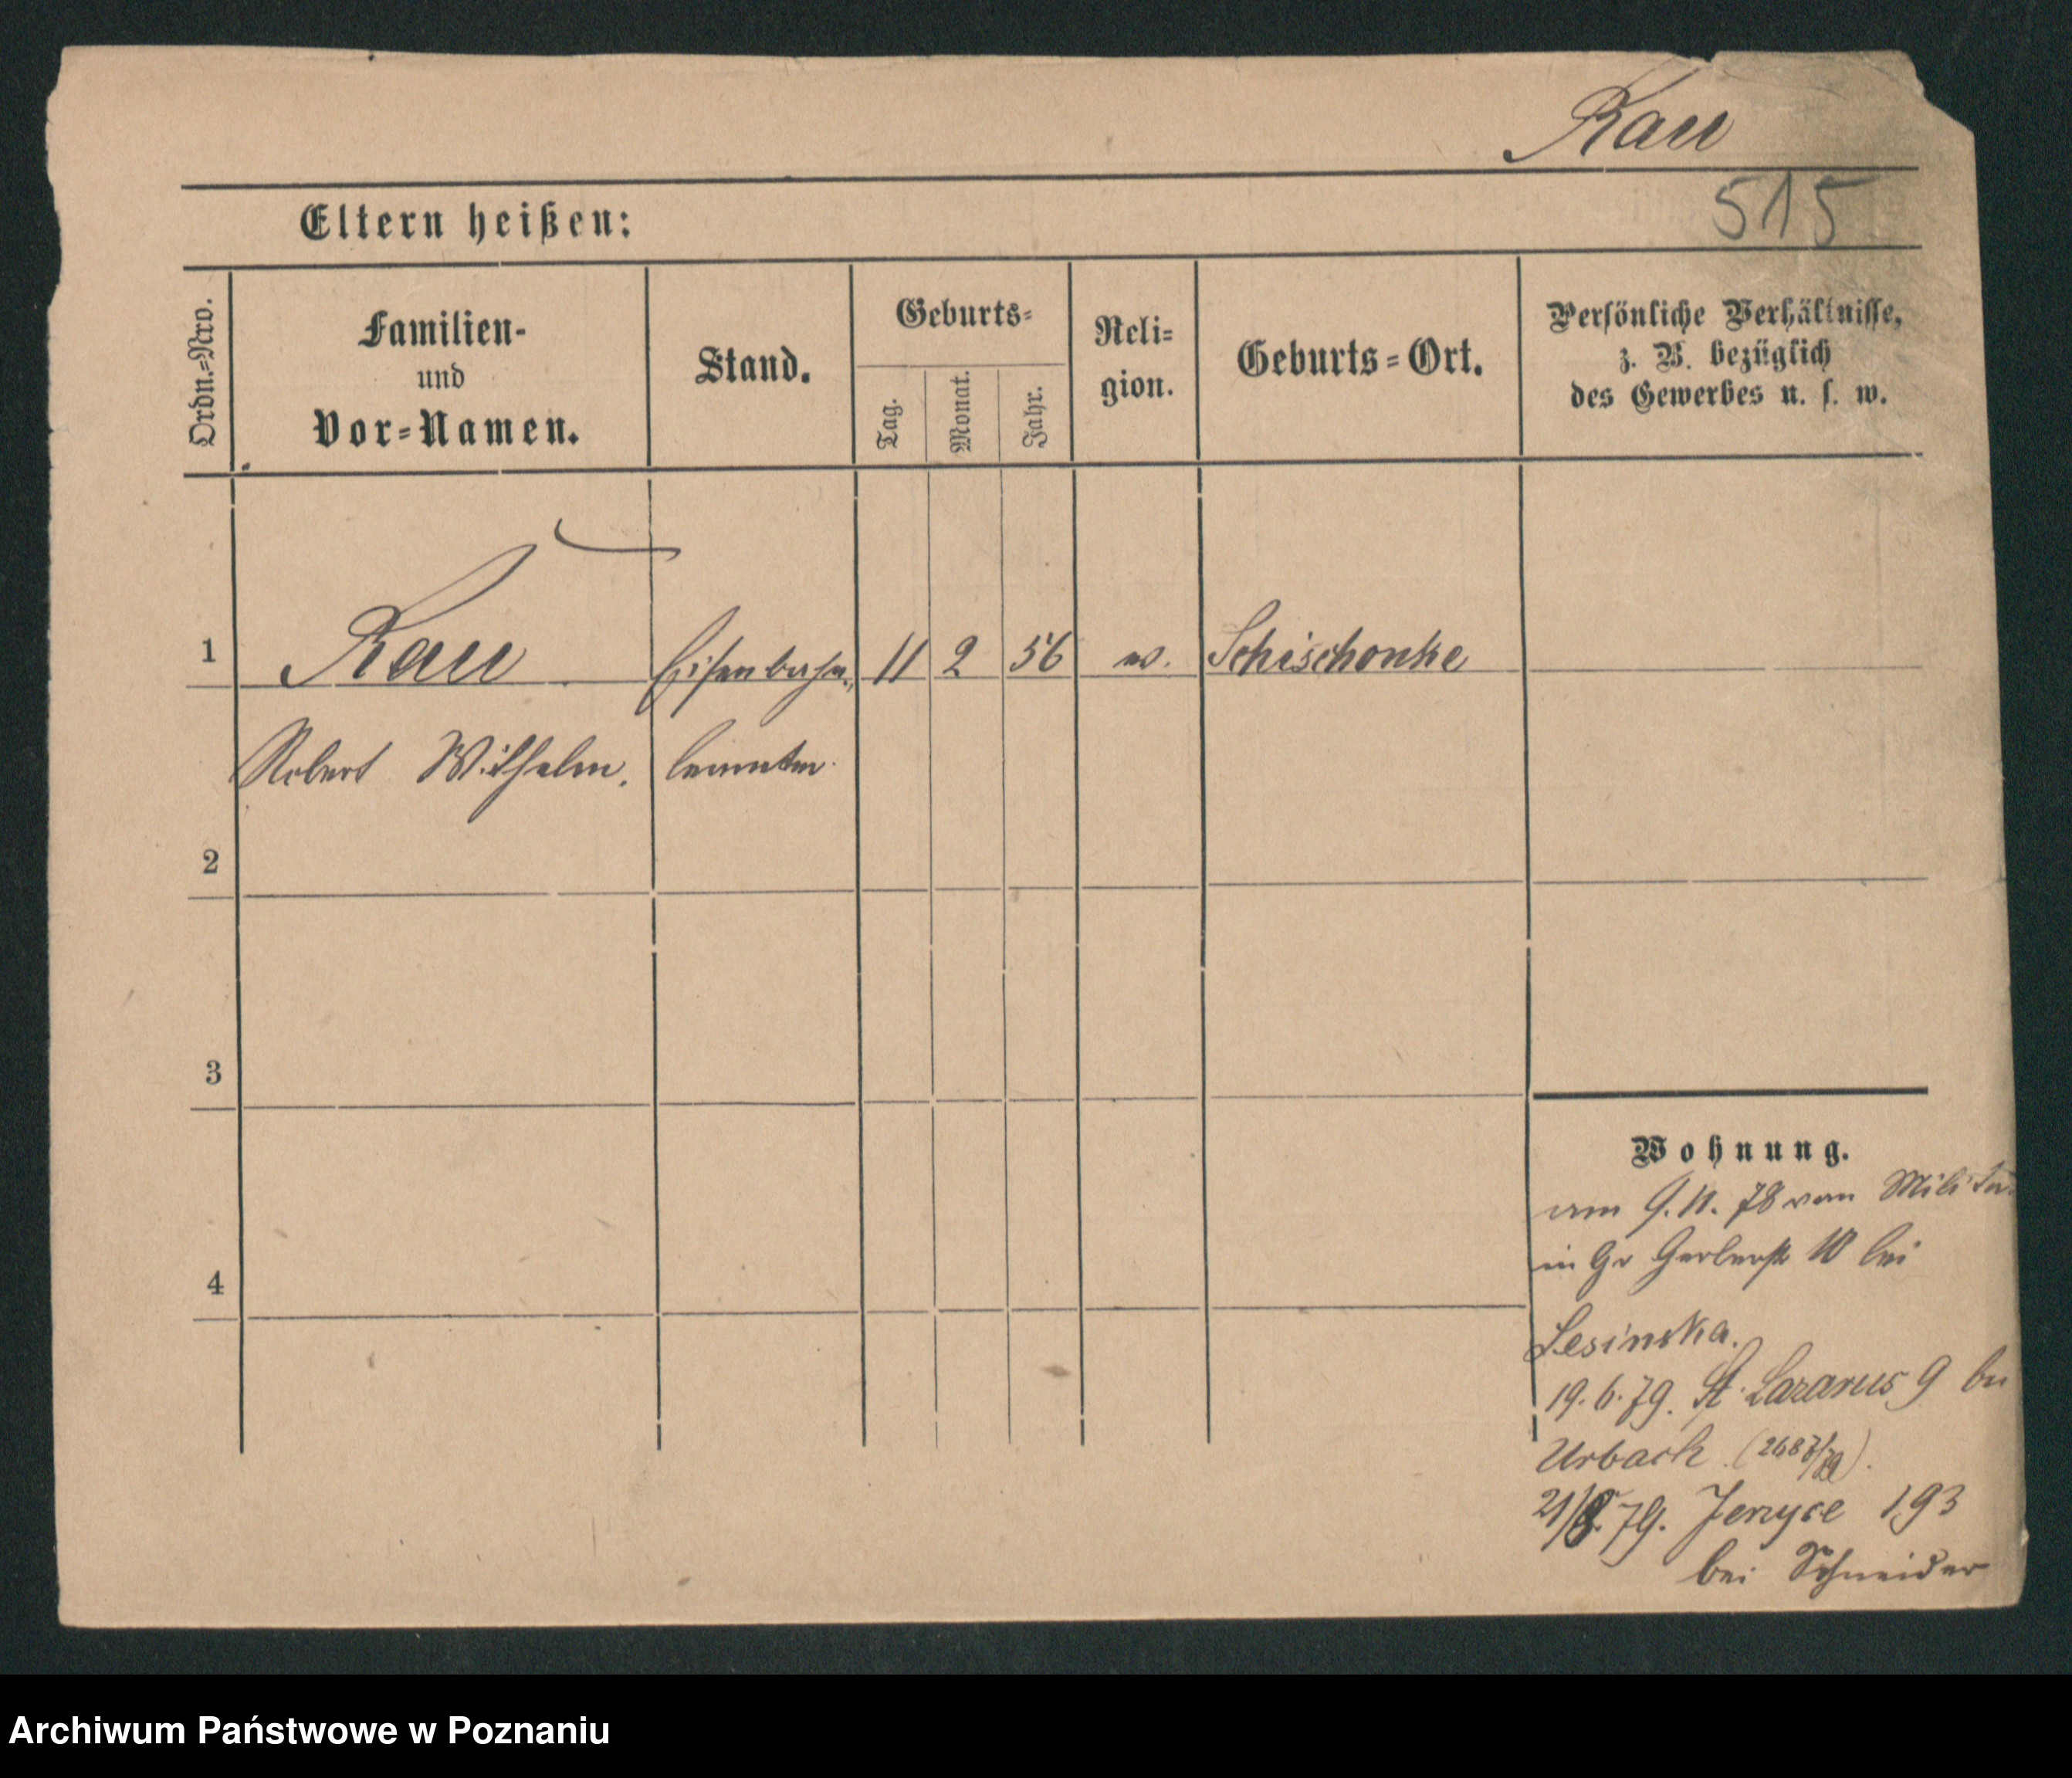 Rau
515
Eltern heißen:
Ordn.=Nro.
Familien-
und
Vor=Namen.
Stand.
Geburts=
Tag.
Monat.
Jahr.
Reli=
gion.
Geburts=Ort.
Persönliche Verhältnisse,
z. B. bezüglich
des Gewerbes u. s. w.
1
Rau Eisenbahn 11 2 56 ev. Schischonke
Robert Wilhelm. beamter
2
3
4
Wohnung.
am 9. 11. 78 vom Militär
in Gr Gerberstr 10 bei
Lesinska.
19. 6. 79. St. Lazarus 9 bei
Urbach.
21/8. 79. Jerzyce 193
bei Schneider
Archiwum Państwowe w Poznaniu